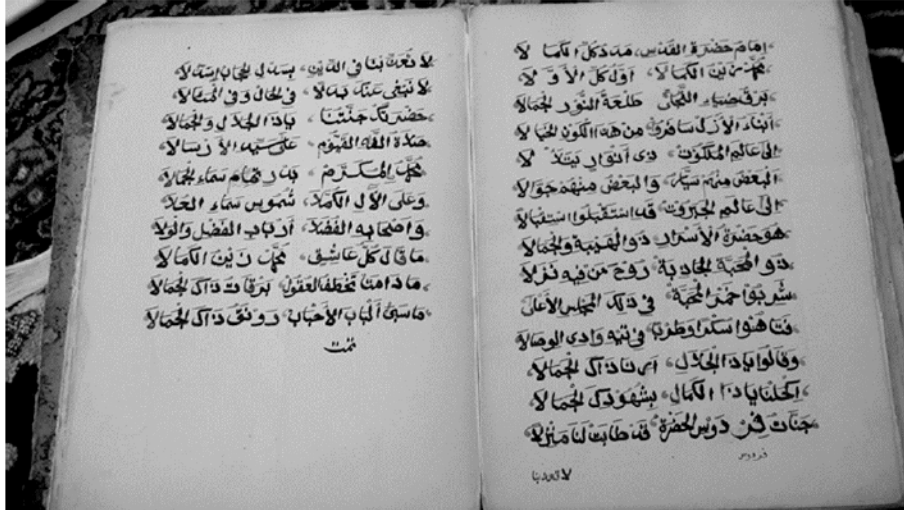 إمام حضرة القدس مدد كل الكمالا
محمد زين الكمالا أول كل الأولا
برق ضياء اللمعان طلعة النور الجمالا
أبناء الأزل سافروا من هذا الكون الخيالا
إلى عالم الملكوت ذي أنوار يتلألا
البعض منهم سيار والبعض منهم جوالا
إلى عالم الجبروت قد استقبلوا استقبالا
هو حضرة الأسرار ذو الهيبة والجمالا
ذو المحبة الجاذبة روح من فيه نزلا
شربوا خمر المحبة في ذلك المجلس الأعلى
فتاهوا سكرا وطربا في تيه وادى الوصالا
وقالوا ياذا الجلال أرنا ذاك الجمالا
اكحلنا ياذا الكمال بشهود ذاك الجمالا
جنات فردوس الحضرة قد طابت لنا منزلا
فردوس
لا تعذبنا
لا تعذبنا في الدنيا بسدل الحجاب إسدالا
لا نبغى عنك بدلا في الحال وفي المثالا
حضرتك جنتنا ياذا الجلال والجمالا
صلاة الله القيوم على سيد الأرسالا
محمد المكرم بدر تمام سماء الجمالا
وعلى الآل الكملا شموس سماء العلا
وأصحابه الفضلا أرباب الفضل والولا
ما قال كل عاشق محمد زين الكمالا
ما دامت تخطف العقول برقات ذاك الجمالا
ما سبى ألباب الأحباب رونق ذاك الجمالا
تمت